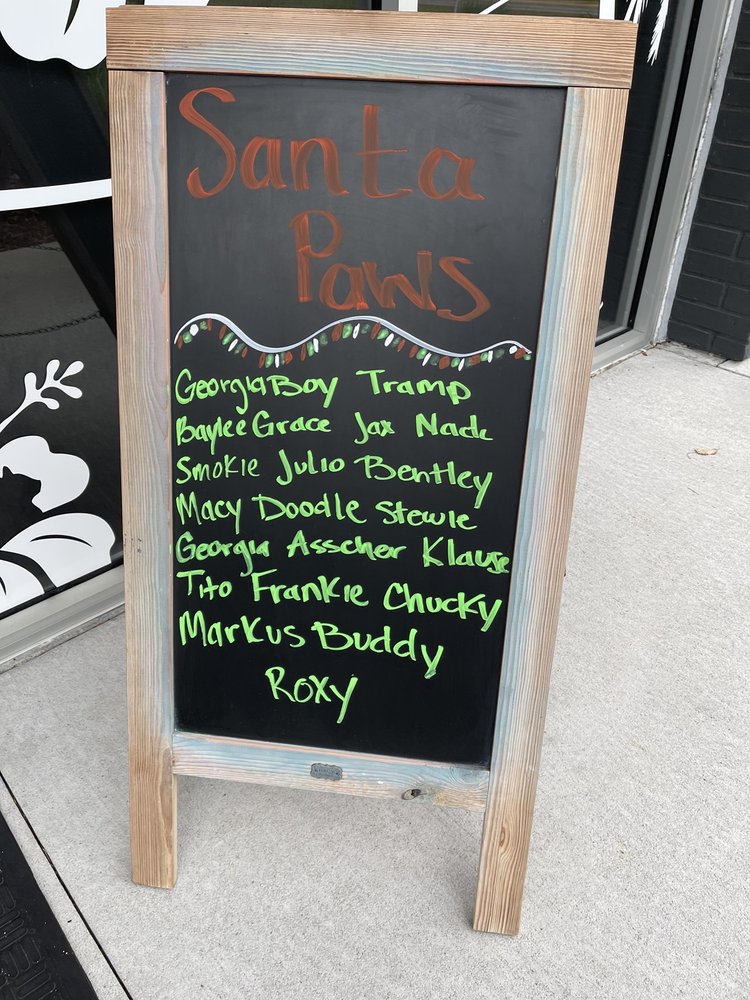 Santa
Paws
GeorgiaBoy Tramp
Baylee Grace Jax Nade
Smokie Julio Bentley
Macy Doodle Stewie
Georgia Asscher Klause
Tito Frankie Chucky
Markus Buddy
Roxy